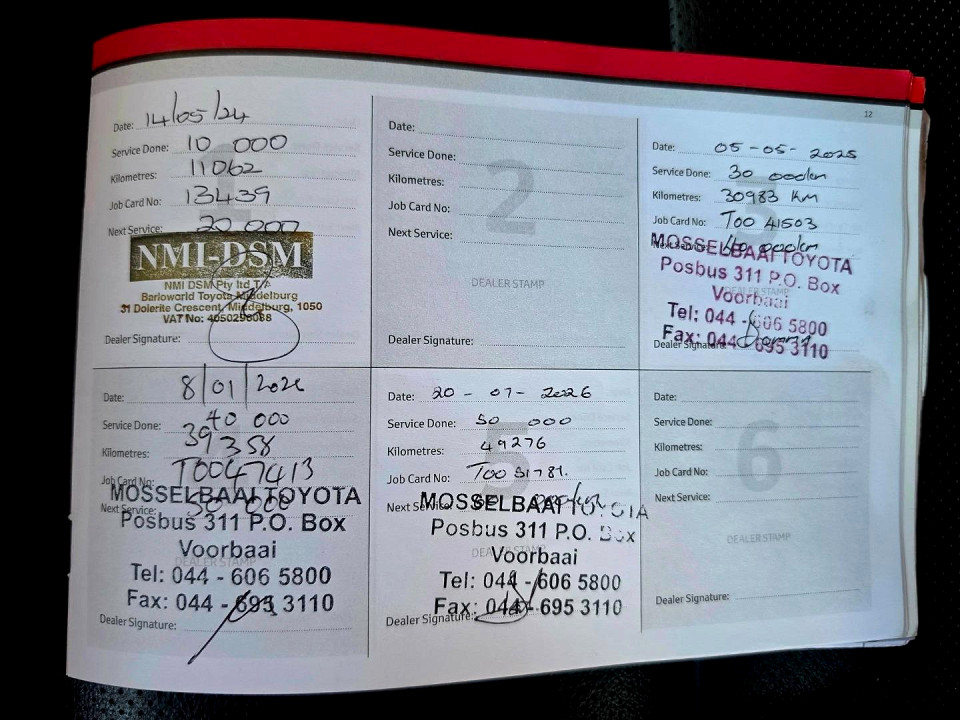 12
Date: 14/05/24
Service Done: 10 000
Kilometres: 11062
Job Card No: 13439
Next Service: 20 000
1
NMI-DSM
NMI DSM Pty ltd T/A
Barloworld Toyota Middelburg
31 Dolerite Crescent, Middelburg, 1050
VAT No: 4050298088
Dealer Signature:
Date:
Service Done:
Kilometres:
Job Card No:
Next Service:
2
DEALER STAMP
Dealer Signature:
Date: 05-05-2025
Service Done: 30 000km
Kilometres: 30983 KM
Job Card No: T00 41503
Next Service: 40 000km
3
MOSSELBAAI TOYOTA
Posbus 311 P.O. Box
DEALER STAMP
Voorbaai
Tel: 044 - 606 5800
Fax: 044 - 695 3110
Dealer Signature:
Date: 8/01/2026
Service Done: 40 000
Kilometres: 39358
Job Card No: T0047413
Next Service: 50 000
MOSSELBAAI TOYOTA
Posbus 311 P.O. Box
Voorbaai
DEALER STAMP
Tel: 044 - 606 5800
Fax: 044 - 695 3110
Dealer Signature:
Date: 20-07-2026
Service Done: 50 000
Kilometres: 49276
Job Card No: T00 51781.
Next Service: 60 000km
5
MOSSELBAAI TOYOTA
Posbus 311 P.O. Box
Voorbaai
DEALER STAMP
Tel: 044 - 606 5800
Fax: 044 - 695 3110
Dealer Signature:
Date:
Service Done:
Kilometres:
Job Card No:
Next Service:
6
DEALER STAMP
Dealer Signature: